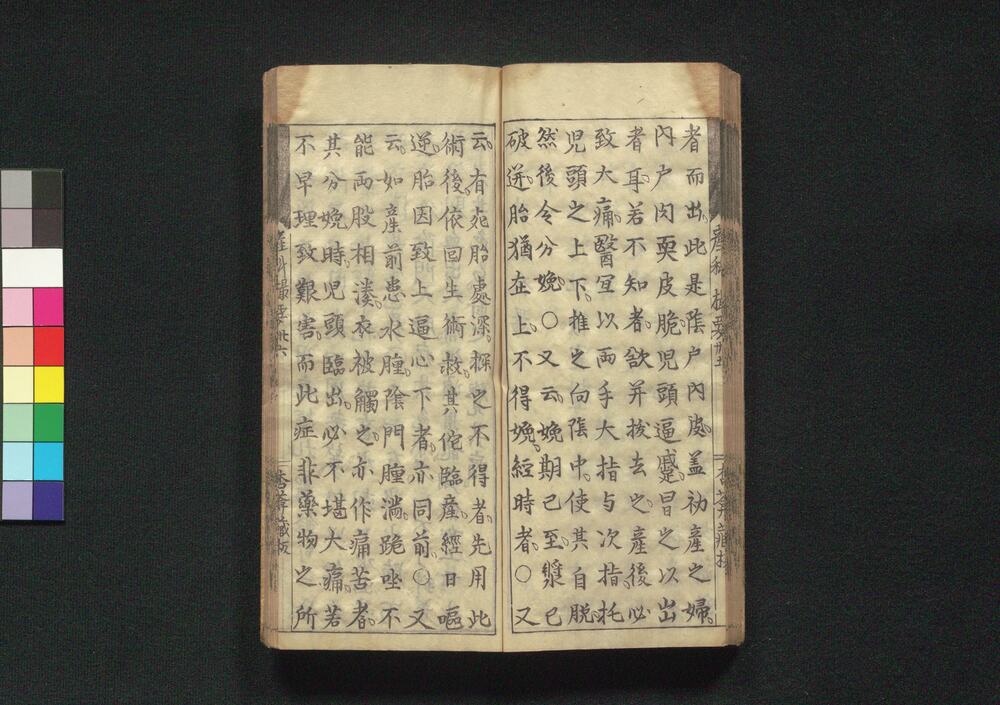 者而出此是陰戶內皮。盖初產之婦。
內戶肉耎皮脆。兒頭逼蹙冒之以出
者耳。若不知者。欲并拔去之。產後必
致大痛。醫宜以兩手大指与次指。托
兒頭之上下。推之向陰中。使其自脫。
然後令分娩。〇又云。娩期已至。漿已
破迸。胎猶在上。不得娩。經時者。〇又
云。有死胎處深。探之不得者。先用此
術後。依回生術救。其佗臨產。經日嘔
逆。胎因致上逼心下者。亦同前。〇又
云。如產前患水腫。陰門腫満。跪坐不
能兩股相湊。衣被觸之。亦作痛苦者。
其分娩時。兒頭臨出。必不堪大痛。若
不早理致艱害。而此症非藥物之所
產科撮要 卅五
產科撮要 卅六
杏葊藏板